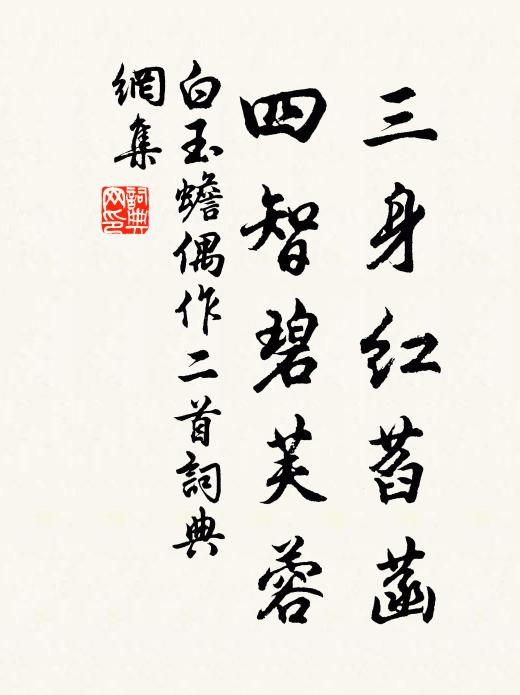 三身紅菡萏
四智碧芙蓉
白玉蟾偶作二首詞典
網集
詞典网印